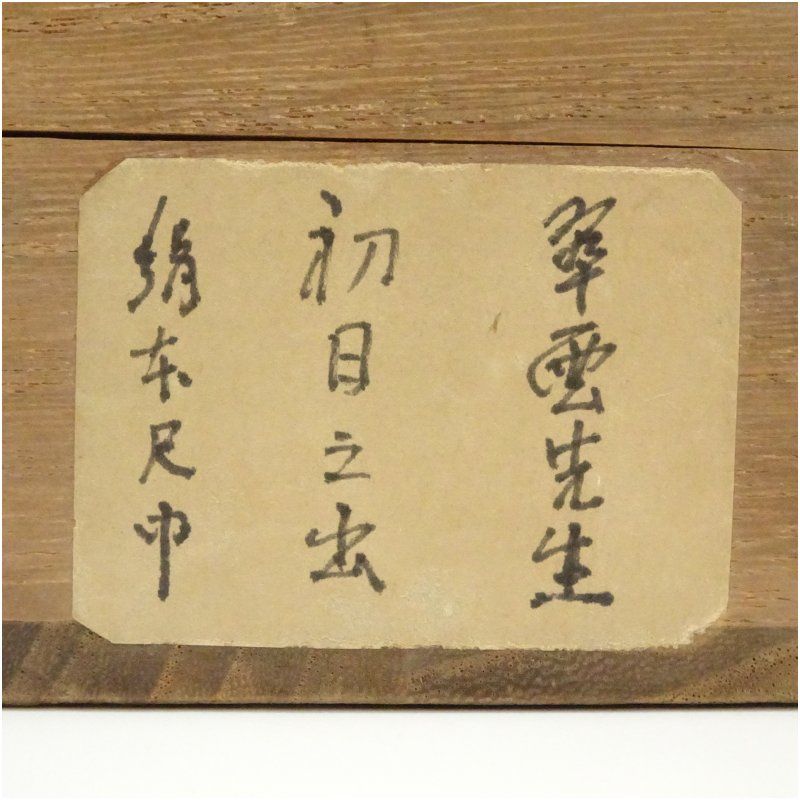 翠雲先生
初日之出
絹本尺巾